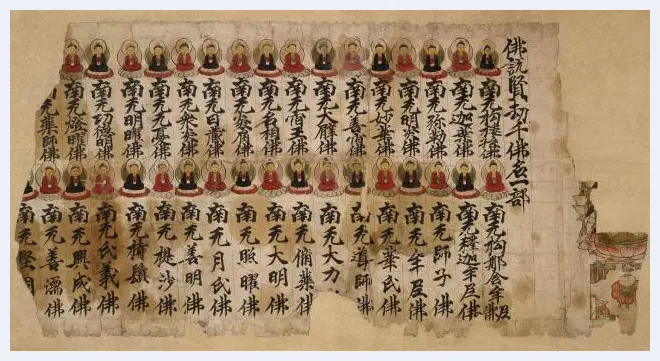 佛説賢劫千佛名一部
南无拘樓孫佛
南无迦葉佛
南无弥勒佛
南无明炎佛
南无妙華佛
南无善宿佛
南无大臂佛
南无宿王佛
南无名相佛
南无佛
南无日藏佛
南无衆炎佛
南无无憂佛
南无明曜佛
南无功德明佛
南无燈曜佛
南无藥師佛
南无拘那含牟尼佛
南无釋迦牟尼佛
南无師子佛
南无牟尼佛
南无華氏佛
南无導師佛
南无大力
南无脩藥佛
南无大明佛
南无照曜佛
南无月氏佛
南无善明佛
南无提沙佛
南无持鬘佛
南无氏義佛
南无興成佛
南无善濡佛
南无堅